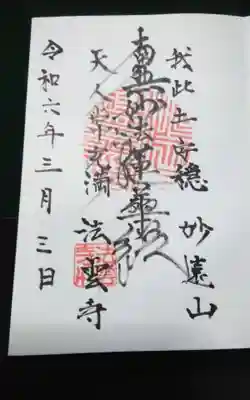 我此土安穏
妙遠山
南無妙法蓮華経
天人常充満
法雲寺
令和六年三月三日